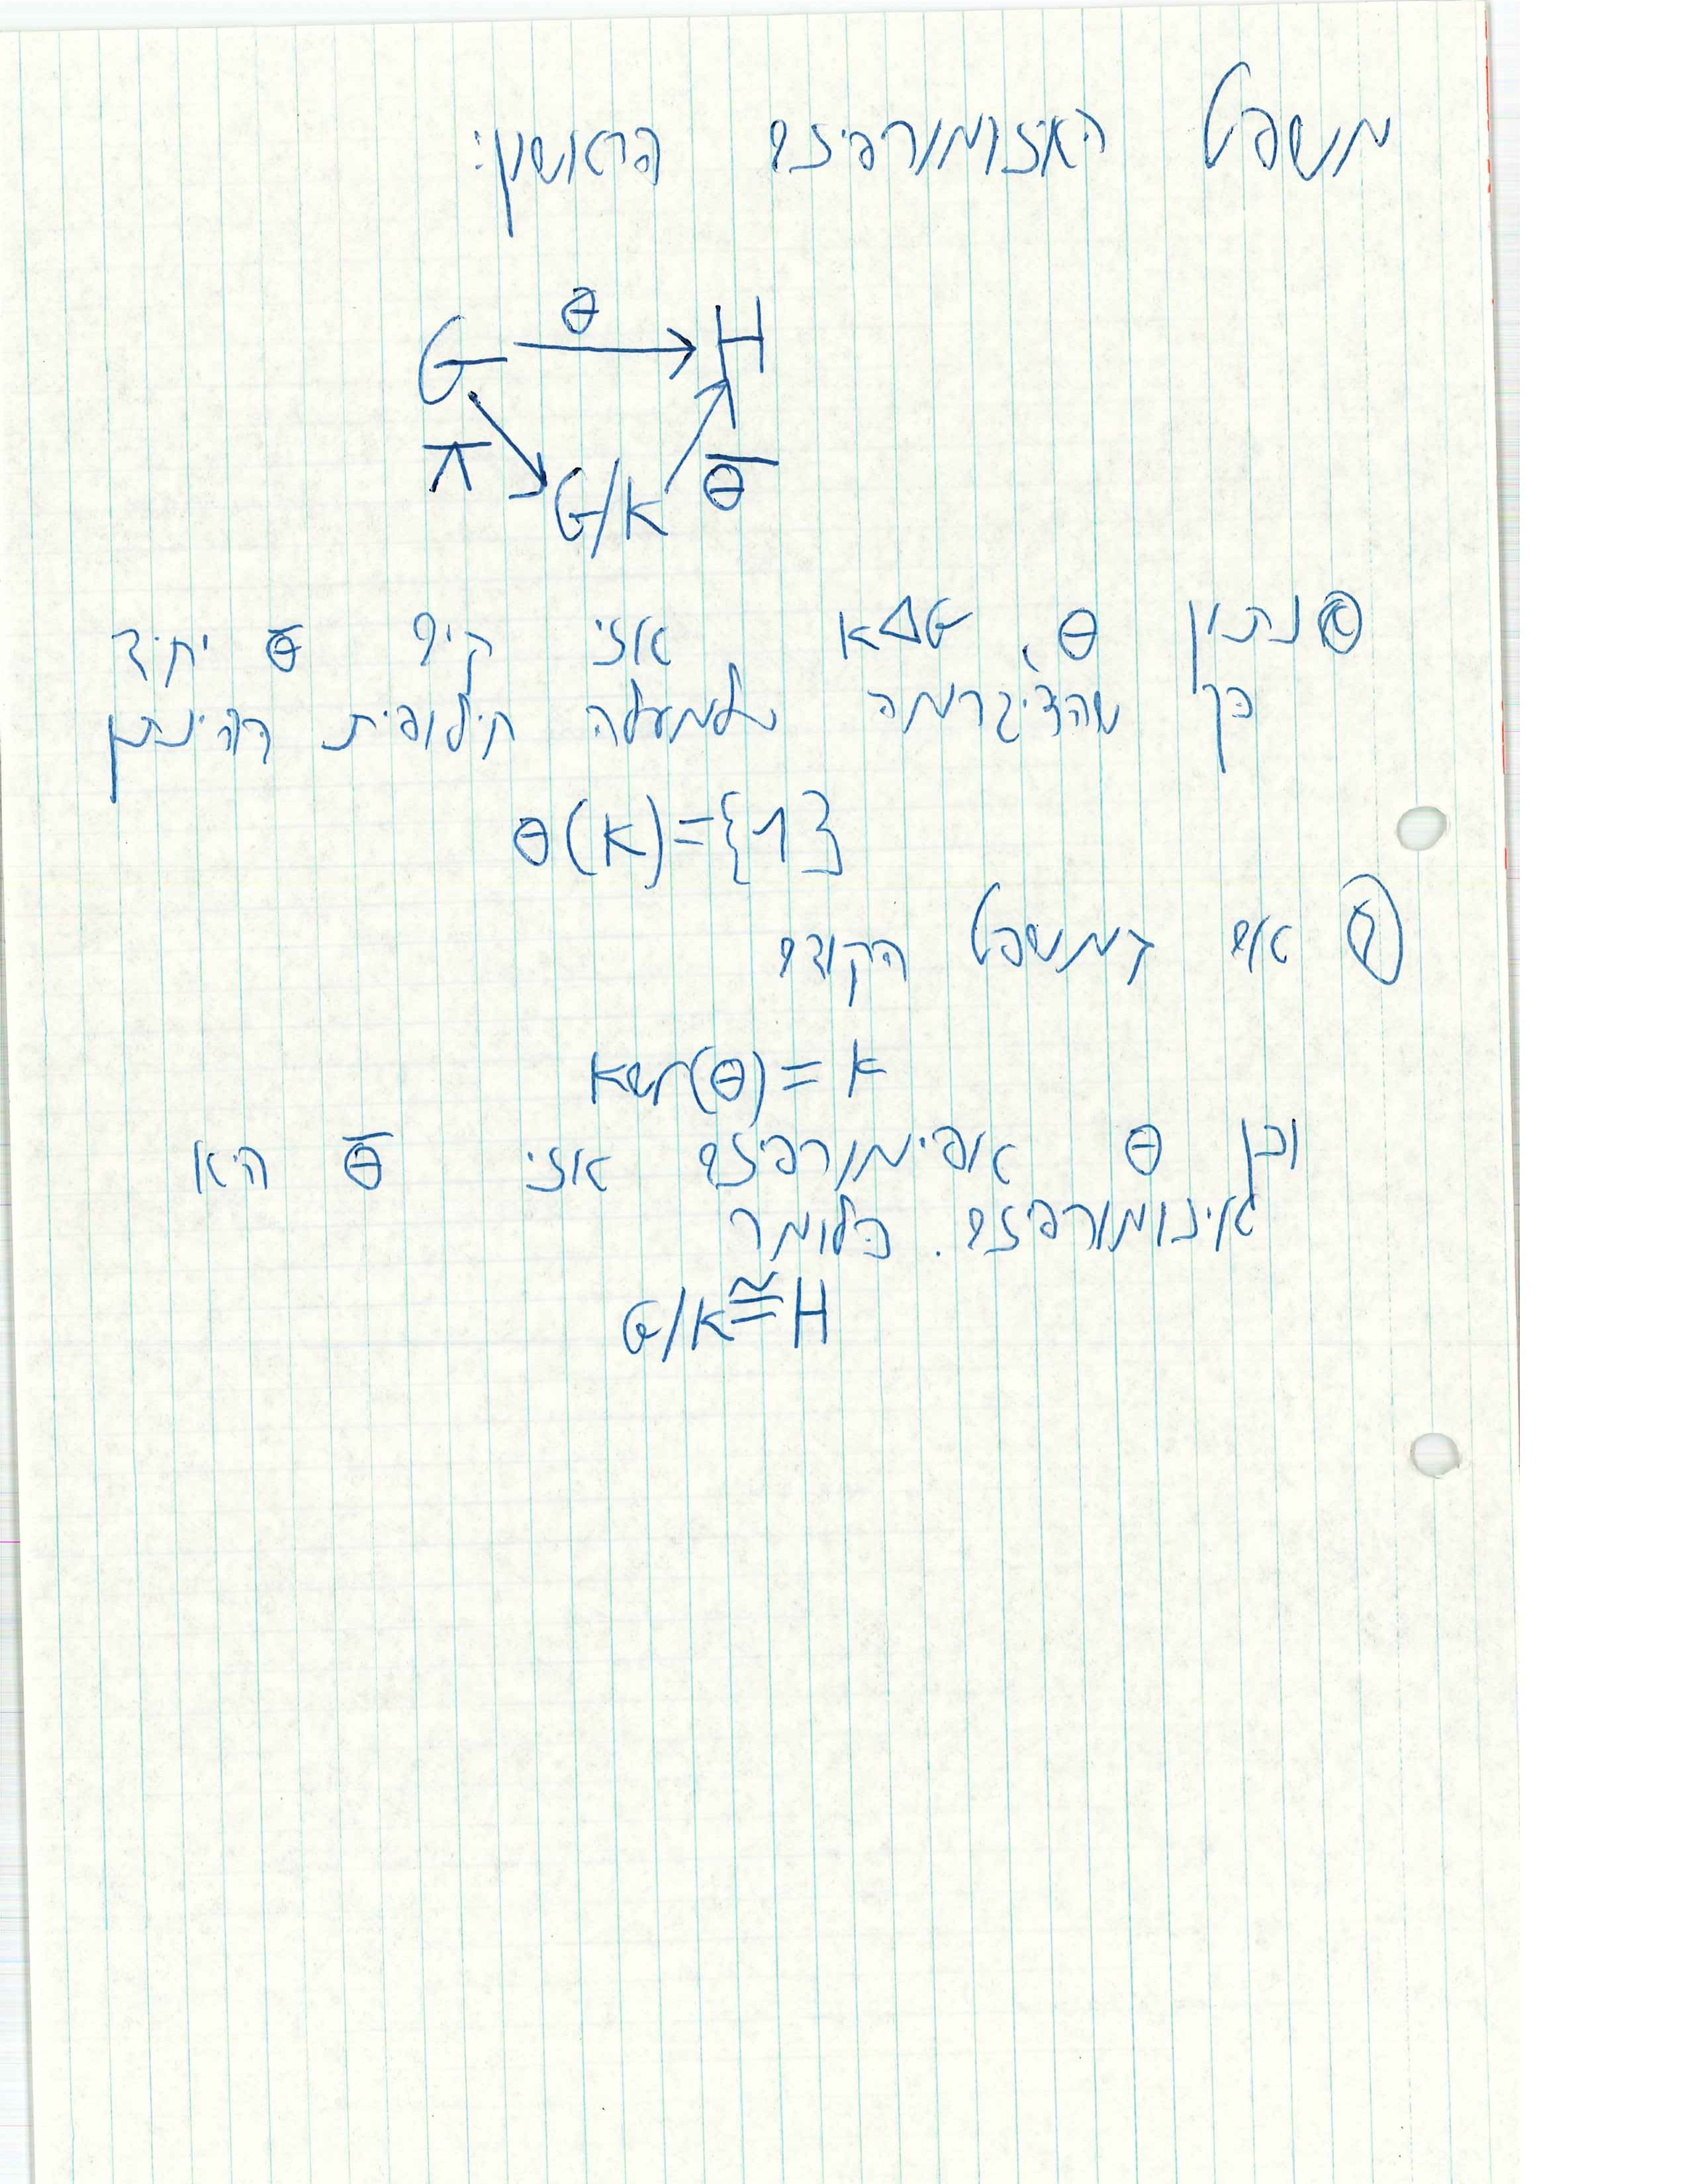 משפט האיזומורפיזם הראשון:
θ
G → H
π G/K θ̄
א נתון θ, K◁G אזי קיים θ̄ יחיד
כך שהדיגרמה שלמעלה חילופית בהינתן
θ(K)={1}
ב אם במשפט הקודם
ker(θ)=K
וכן θ אפימורפיזם אזי θ̄ היא
איזומורפיזם. כלומר
G/K≅H